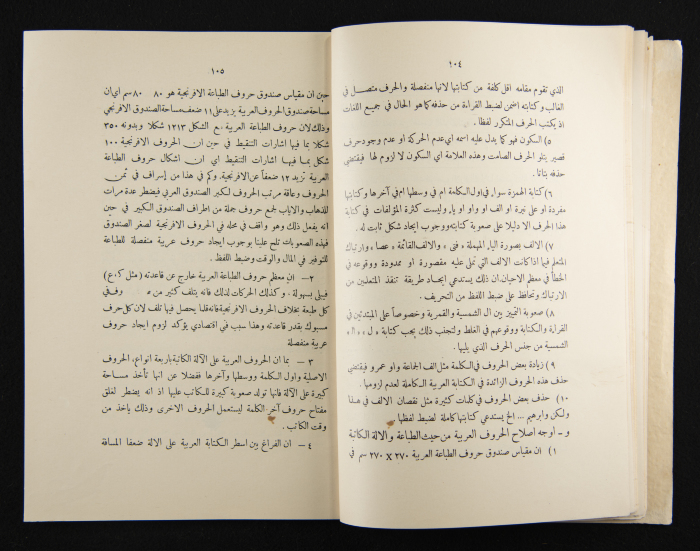 ١٠٤
الذي تقوم مقامه اقل كلفة من كتابتها لانها منفصلة والحرف متصل في
الغالب وكتابته اضمن لضبط القراءة من حذفه كما هو الحال في جميع اللغات
اذ يكتب الحرف المتكرر لفظا.
٥) السكون فهو كما يدل عليه اسمه اي عدم الحركة او عدم وجود حرف
قصير يتلو الحرف الصامت وهذه العلامة اي السكون لا لزوم لها فيقتضي
حذفه بتاتا.
٦) كتابة الهمزة سواء في اول الكلمة ام في وسطها ام في آخرها وكتابتها
مفردة او على نبرة او الف او واو او ياء وليست كثرة المؤلفات في كتابة
هذا الحرف الا دليلا على صعوبة كتابته ووجوب ايجاد شكل ثابت له.
٧) الالف بصورة الياء المهملة « فتى » والالف القائمة « عصا » وارتباك
المتعلم فيها اذا كانت الالف التي تملى عليه مقصورة او ممدودة ووقوعه في
الخطأ في معظم الاحيان. ان ذلك يستدعي ايجاد طريقة تنقذ المتعلمين من
الارتباك وتحافظ على ضبط اللفظ من التحريف.
٨) صعوبة التمييز بين ال الشمسية والقمرية وخصوصاً على المبتدئين في
القراءة والكتابة ووقوعهم في الغلط ولتجنب ذلك يجب كتابة « ل » « ال »
الشمسية من جنس الحرف الذي يليها.
٩) زيادة بعض الحروف في الكلمة مثل الف الجماعة واو عمرو فيقتضي
حذف هذه الحروف الزائدة في الكتابة العربية الكاملة لعدم لزومها.
١٠) حذف بعض الحروف في كلمات كثيرة مثل نقصان الالف في هذا
ولكن وابرهيم ... الخ يستدعي كتابتها كاملة لضبط لفظها
و – اوجه اصلاح الحروف العربية من حيث الطباعة والالة الكاتبة
١) ان مقياس صندوق حروف الطباعة العربية ٢٧٠ X ٢٧٠ سم في
١٠٥
حين ان مقياس صندوق حروف الطباعة الافرنجية هو ٨٠ ٨٠ سم اي ان
مساحة صندوق الحروف العربية يزيد على ١١ ضعف مساحة الصندوق الافرنجي
وذلك لان حروف الطباعة العربية مع الشكل ١٢١٣ شكلا وبدونه ٣٥٠
شكلا بما فيها اشارات التنقيط في حين ان الحروف الافرنجية ١٠٠
شكل بما فيها اشارات التنقيط اي ان اشكال حروف الطباعة
العربية تزيد ١٢ ضعفا عن الافرنجية. وكم في هذا من إسراف في ثمن
الحروف واعاقة مرتب الحروف لكبر الصندوق العربي فيضطر عدة مرات
للذهاب والاياب لجمع حروف جملة من اطراف الصندوق الكبير في حين
انه يفعل ذلك وهو واقف في محله في الحروف الافرنجية لصغر الصندوق
فهذه الصعوبات تلح علينا بوجوب ايجاد حروف عربية منفصلة للطباعة
للتوفير في المال والوقت وضبط اللفظ.
٢ – ان معظم حروف الطباعة العربية خارج عن قاعدته ( مثل ر، ع )
فيبلى بسهولة. وكذلك الحركات لذلك فانه يتلف كثير من وف في
كل طبعة بخلاف الحروف الافرنجية فانه قلما يحصل فيها تلف لان كل حرف
مسبوك بقدر قاعدته وهذا سبب فني اقتصادي يؤكد لزوم ايجاد حروف
عربية منفصلة
٣ – بما ان الحروف العربية على الآلة الكاتبة باربعة انواع، الحروف
الاصلية واول الكلمة ووسطها وآخرها ففضلا عن انها تأخذ مساحة
كبيرة على الآلة فانها تولد صعوبة كبيرة للكاتب عليها اذ انه يضطر لغلق
مفتاح حروف آخر الكلمة ليستعمل الحروف الاخرى وذلك ياخذ من
وقت الكاتب.
٤ – ان الفراغ بين اسطر الكتابة العربية على الالة ضعفا المسافة